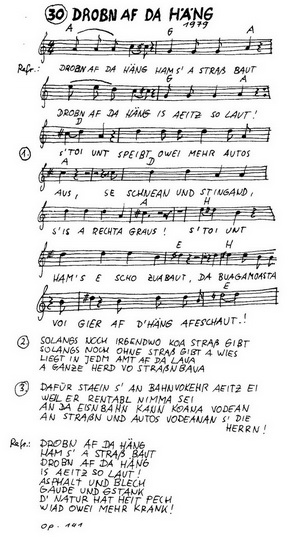 30 DROBN AF DA HÄNG
1979
A G A
Refr.: DROBN AF DA HÄNG HAM S' A STRAß BAUT
A G A
DROBN AF DA HÄNG IS AEITZ SO LAUT!
D
1. S'TOI UNT SPEIBT OWEI MEHR AUTOS
A D
AUS, SE SCHNEAN UND STINGAND,
A H
S'IS A RECHTA GRAUS! S'TOI UNT
E H
HAM'S E SCHO ZUABAUT, DA BUAGAMOASTA
E
VOI GIER AF D'HÄNG AFESCHAUT.!
2 SOLANGS NOCH IRGENDWO KOA STRAß GIBT
SOLANGS NOCH OHNE STRAß GIBT A WIES
LIEGT IN JEDM AMT AF DA LAUA
A GANZE HERD VO STRAßNBAUA
3. DAFÜR STAEIN S' AN BAHNVOKEHR AEITZ EI
WEIL ER RENTABL NIMMA SEI
AN DA EISNBAHN KANN KOANA VODEAN
AN STRAßN UND AUTOS VODEANAN S' DIE
HERRN!
Refr: DROBN AF DA HÄNG
HAM S' A STRAß BAUT
DROBN AF DA HÄNG
IS AEITZ SO LAUT!
ASPHALT UND BLECH
GAUDE UND GSTANK
D' NATUR HAT HEIT PECH
WIAD OWEI MEHR KRANK!
Op. 141